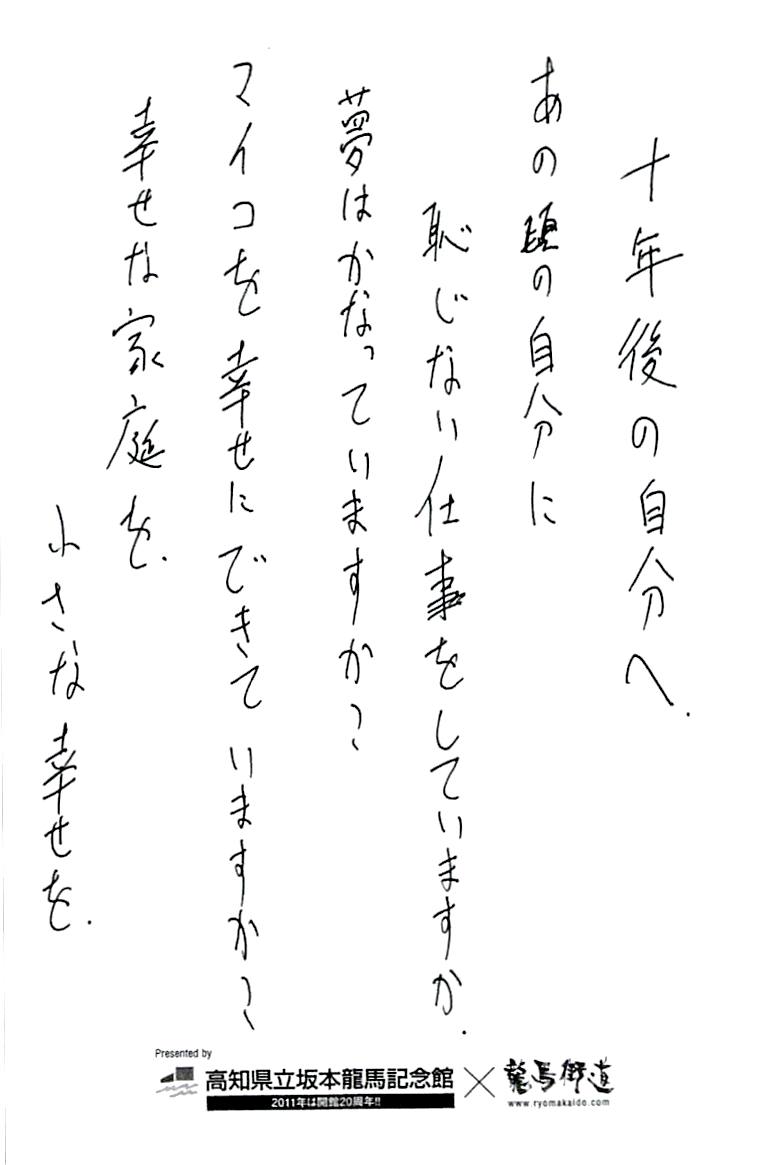 十年後の自分へ.
あの頃の自分に
恥じない仕事をしていますか.
夢はかなっていますか?
マイコを幸せにできていますか?
幸せな家庭を.
小さな幸せを.
Presented by
高知県立坂本龍馬記念館
2011年は開館20周年!!
×
龍馬街道
www.ryomakaido.com